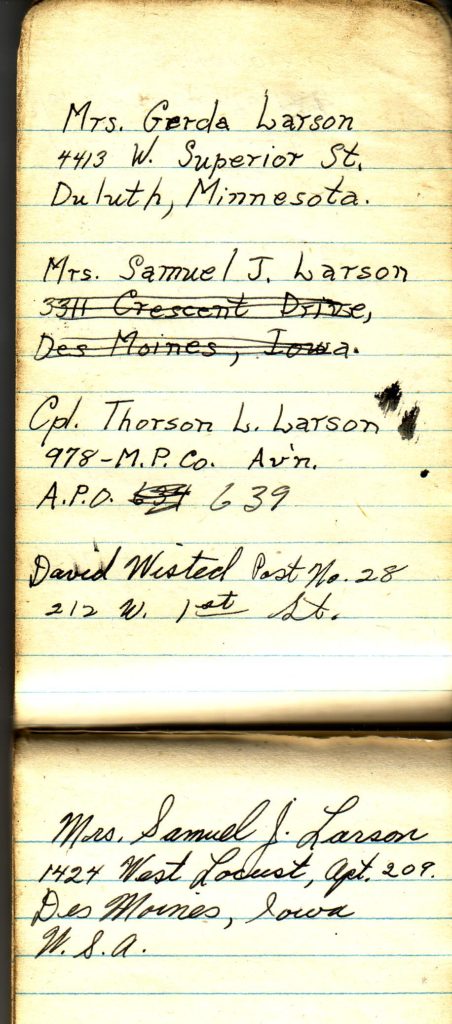 Mrs. Gerda Larson
4413 W. Superior St.
Duluth, Minnesota.
Mrs. Samuel J. Larson
3311 Crescent Drive,
Des Moines, Iowa.
Cpl. Thorson L. Larson
978-M.P. Co. Av'n.
A.P.O. 639
David Wisted Post No. 28
212 W. 1st St.
Mrs. Samuel J. Larson
1424 West Locust, Apt. 209.
Des Moines, Iowa
U.S.A.